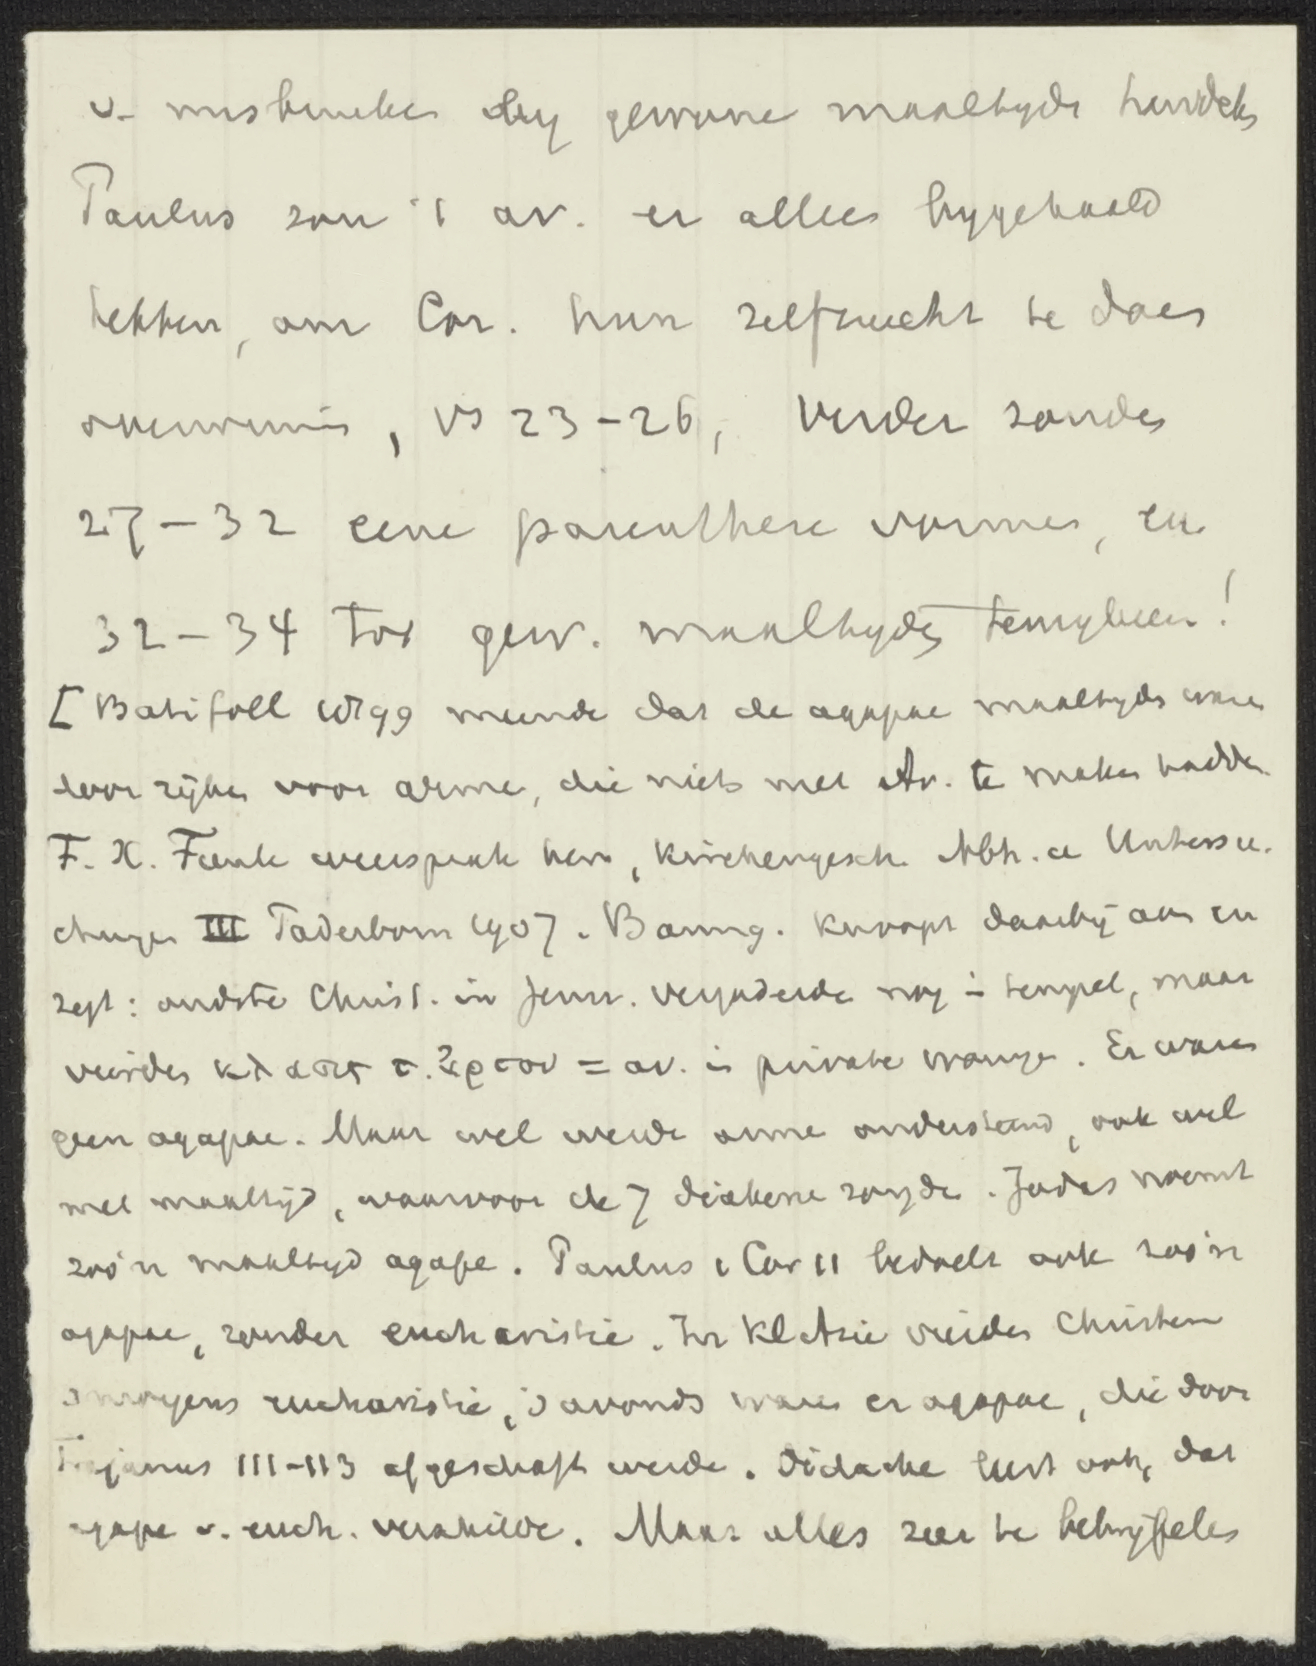 v. misbruiken bij gewone maaltijde handelen
Paulus zou 't av. er alleen bijgehaald
hebben, om Cor. hun zelfzucht te doen
overwinnen, vs 23-26, verder zouden
27-32 eene parenthese vormen, en
32-34 tot gew. maaltijden terugkeeren!
[Batifoll meende dat de agapae maaltijde waren
door rijken voor arme, die niets met Av. te maken hadden.
F. X. Funk weersprak hem, Kirchengesch. Abh. u Untersu-
chungen III Paderborn 1907. Baumg. knoopt daarbij aan en
zegt: oudste Christ. in Jerus. vergaderde nog in tempel, maar
vierden κλασις τ. ἄρτου = av. in private woninge. Er waren
geen agapae. Maar wel werde arme ondersteund, ook wel
met maaltijd, waarvoor de 7 diakene zorgde. Judas noemt
zoo'n maaltijd agape. Paulus 1 Cor 11 bedoelt ook zoo'n
agapae, zonder eucharistie. In Kl Azie vierden Christenen
's morgens eucharistie, 's avonds waren er agapae, die door
Trajanus 111-113 afgeschaft werde. Didache leert ook, dat
agape v. euch. verschilde. Maar alles zeer te betwijfelen